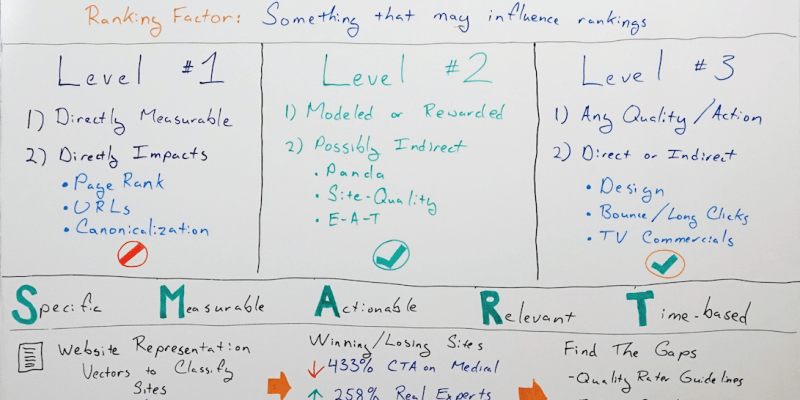 Ranking Factor: Something that may influence rankings
Level #1
1) Directly Measurable
2) Directly Impacts
• Page Rank
• URLs
• Canonicalization
Level #2
1) Modeled or Rewarded
2) Possibly Indirect
• Panda
• Site-Quality
• E-A-T
Level #3
1) Any Quality/Action
2) Direct or Indirect
• Design
• Bounce/Long Clicks
• TV Commercials
Specific Measurable Actionable Relevant Time-based
Website Representation
Vectors to Classify
Sites
Winning/Losing Sites
↓ 433% CTA on Medical
↑ 258% Real Experts
Find The Gaps
-Quality Rater Guidelines